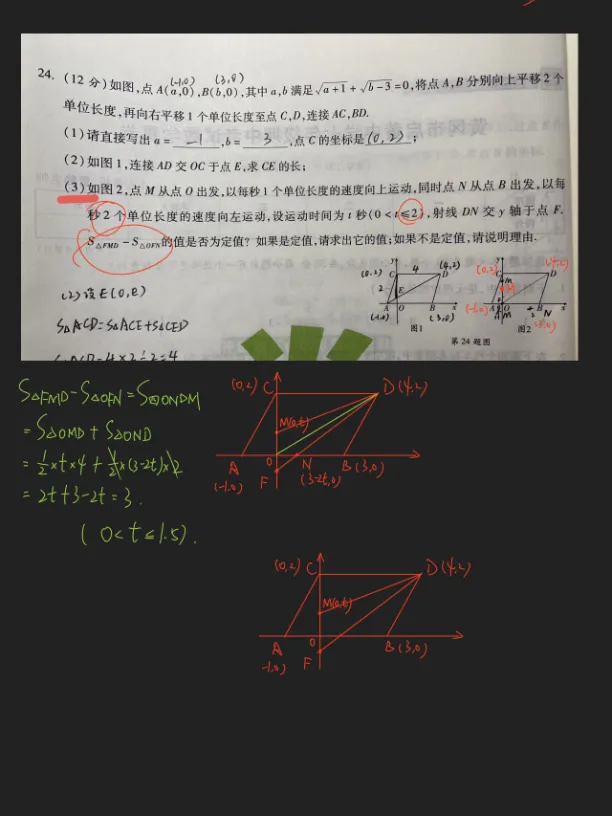 24. (12分)如图,点A(a,0),B(b,0),其中a,b满足√a+1+√b-3=0,将点A,B分别向上平移2个
(-1,0) (3,0)
单位长度,再向右平移1个单位长度至点C,D,连接AC,BD.
(1)请直接写出a=-1,b=3,点C的坐标是(0,2);
(2)如图1,连接AD交OC于点E,求CE的长;
(3)如图2,点M从点O出发,以每秒1个单位长度的速度向上运动,同时点N从点B出发,以每
秒2个单位长度的速度向左运动,设运动时间为t秒(0<t≤2),射线DN交y轴于点F.
S△FMD-S△OFN的值是否为定值?如果是定值,请求出它的值;如果不是定值,请说明理由.
(2)设E(0,e)
S△ACD=S△ACE+S△CED
S△ACD=4×2÷2=4
y
(0,2) C 4 (4,2) D
2 E
A O B x
(-1,0) (3,0)
图1
y
(0,2) C (4,2) D
M
(-1,0) A O N B x
(3,0)
图2
第24题图
S△FMD-S△OFN=S四ONDM
=S△OMD+S△OND
=1/2×t×4+1/2×(3-2t)×2
=2t+3-2t=3.
(0<t≤1.5).
(0,2) C D(4,2)
M(0,t)
A O N B(3,0)
(-1,0) F (3-2t,0)
(0,2) C D(4,2)
M(0,t)
A O B(3,0)
(-1,0) F